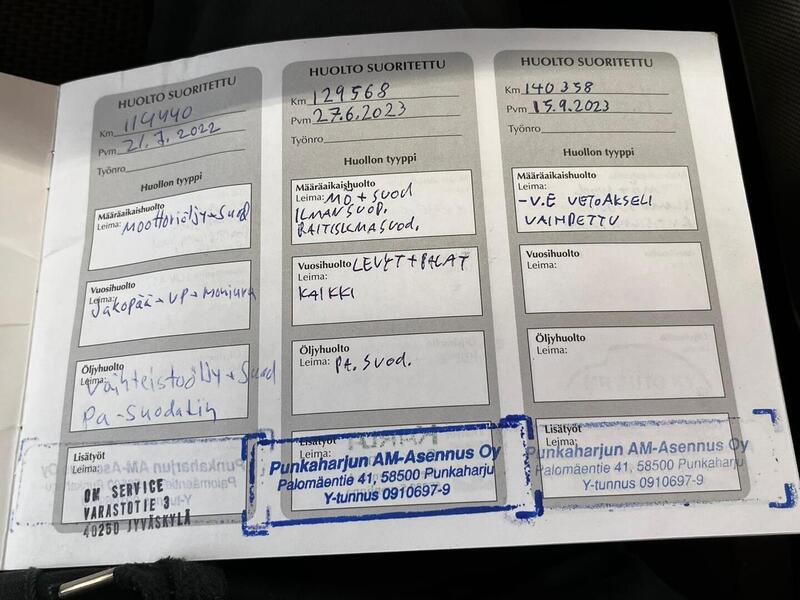 HUOLTO SUORITETTU
Km 114440
Pvm 21.7.2022
Työnro
Huollon tyyppi
Määräaikaishuolto
Leima: Moottoriöljy + Suod
Vuosihuolto
Leima:
Jakopää + VP + moniura
Öljyhuolto
Leima:
Vaihteistoöljy + Suod
Pa-Suodatin
Lisätyöt
Leima:
OM SERVICE
VARASTOTIE 3
40250 JYVÄSKYLÄ
HUOLTO SUORITETTU
Km 129568
Pvm 27.6.2023
Työnro
Huollon tyyppi
Määräaikaishuolto
Leima: MÖ + SUOD
ILMANSUOD.
RAITISILMASUOD.
Vuosihuolto LEVYT + PALAT
Leima:
KAIKKI
Öljyhuolto
Leima: PA. SUOD.
Lisätyöt
Punkaharjun AM-Asennus Oy
Palomäentie 41, 58500 Punkaharju
Y-tunnus 0910697-9
HUOLTO SUORITETTU
Km 140358
Pvm 15.9.2023
Työnro
Huollon tyyppi
Määräaikaishuolto
Leima:
-V.E VETOAKSELI
VAIHDETTU
Vuosihuolto
Leima:
Öljyhuolto
Leima:
Lisätyöt
Leima:
Punkaharjun AM-Asennus Oy
Palomäentie 41, 58500 Punkaharju
Y-tunnus 0910697-9